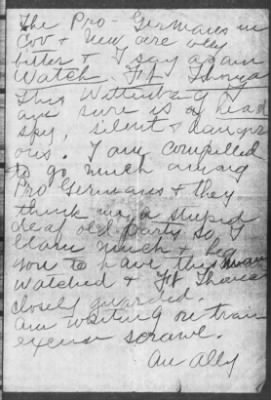 The Pro-Germans in
Cov + New. are very
bitter + I say again
Watch Ft Thomas
This Wittenberg I
am sure is a head
spy, silent + danger
ous. I am compelled
to go much among
Pro Germans + they
think me a stupid
deaf old party so I
learn much + beg
you to have this man
watched + Ft Thomas
closely guarded.
Am writing on train
excuse scrawl.
An Ally